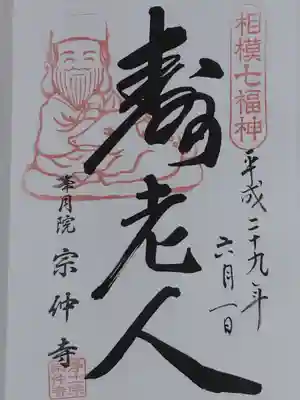 相模七福神
平成二十九年
六月一日
寿老人
華月院
宗仲寺